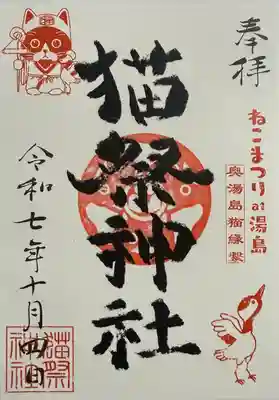 奉拝
ねこまつりat湯島
奥湯島猫縁繋
猫祭神社
令和七年十月四日
猫祭神社